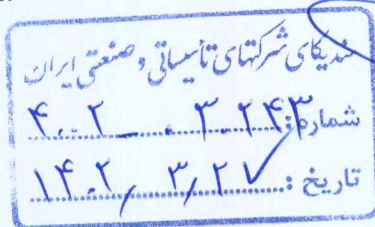 سندیکای شرکتهای تأسیساتی و صنعتی ایران
شماره: ۴۰۰۲_۰۳۰۲۴۳
تاریخ: ۱۴۰۲/۳/۲۷